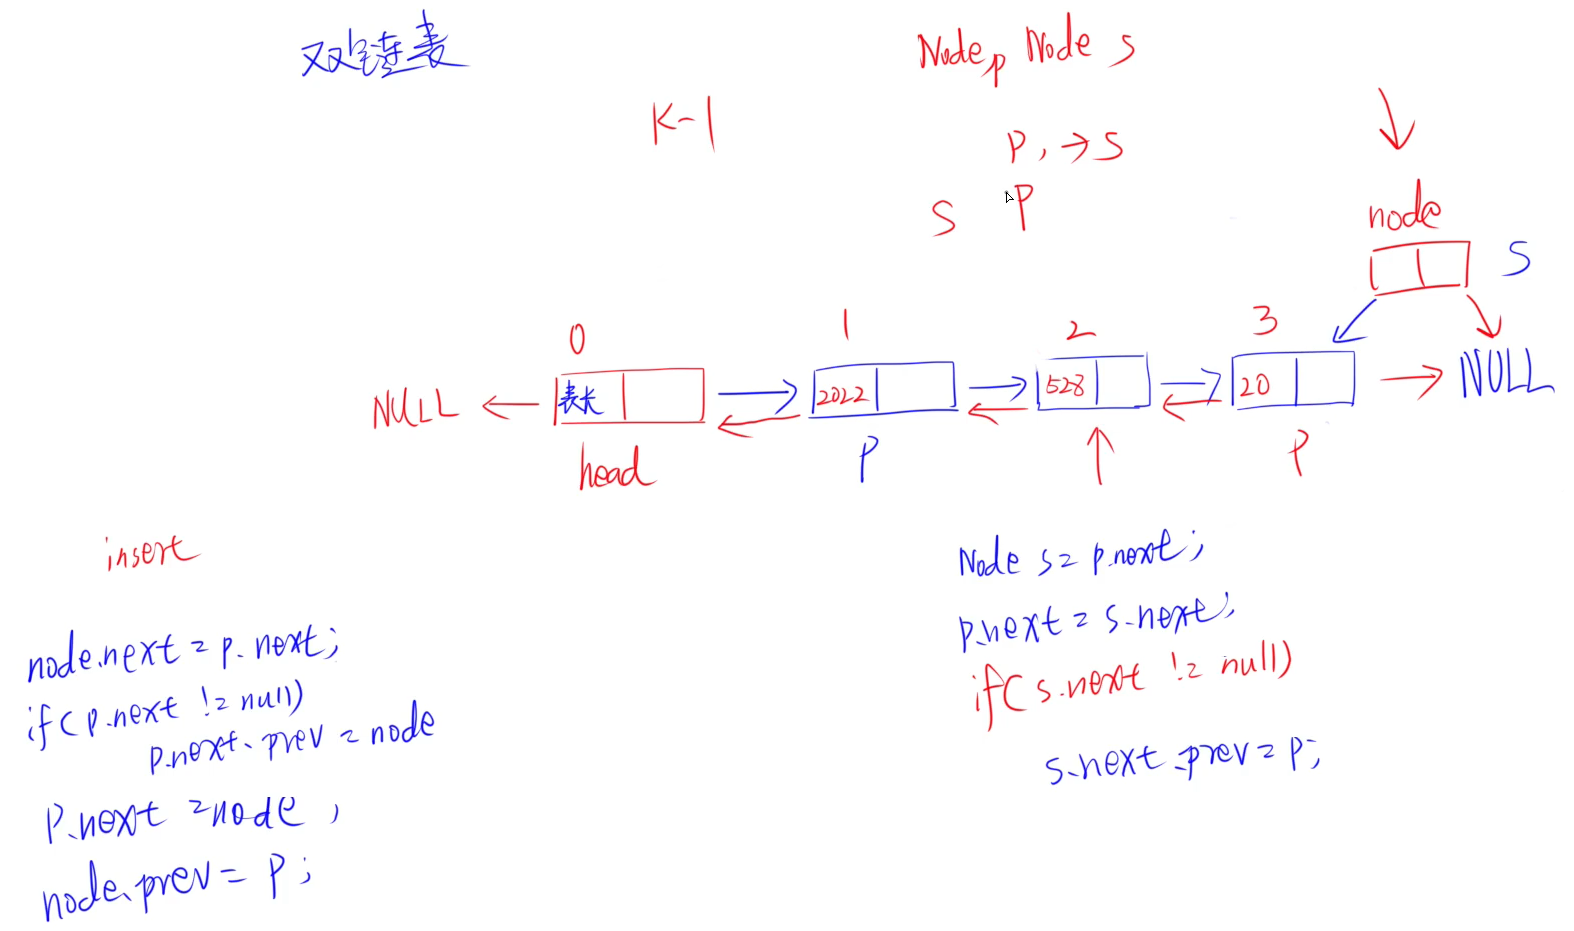 双链表
Node p Node s
K-1
p, → s
s p
node
s
0 1 2 3
NULL ← 表长 → 2022 → 528 → 20 → NULL
head p p
insert
node.next = p.next;
if(p.next != null)
p.next.prev = node
p.next = node;
node.prev = p;
Node s = p.next;
p.next = s.next;
if(s.next != null)
s.next.prev = p;